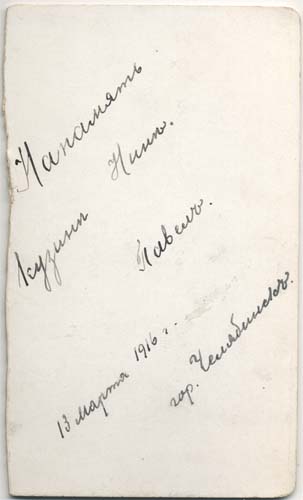 На память
кузинѣ Нинѣ.
Павелъ.
13 Марта 1916 г.
гор. Челябинскъ.